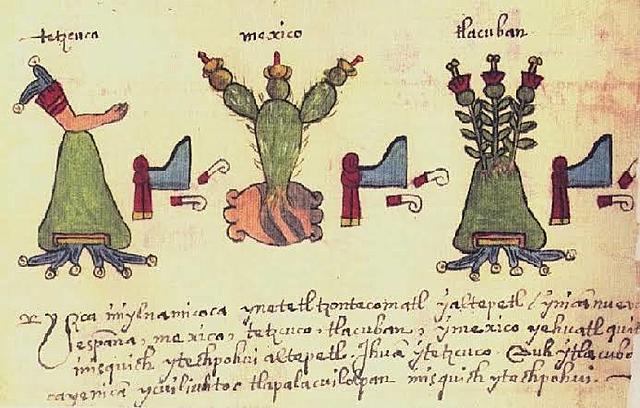 tetzcuca mexico tlacuban
yzca inylnamicoca ynetetl tzontecomatl yaltepetl ynican nueva
españa, mexico, tetzcuco, tlacuban, ymexico yehuatl
inisquich ytechpohui altepetl. Ihuā ytetzcuco. Auh ytlacubā
çayenica ycuiliuhtoc tlapalacuilolpan inisquich ytechpohui.